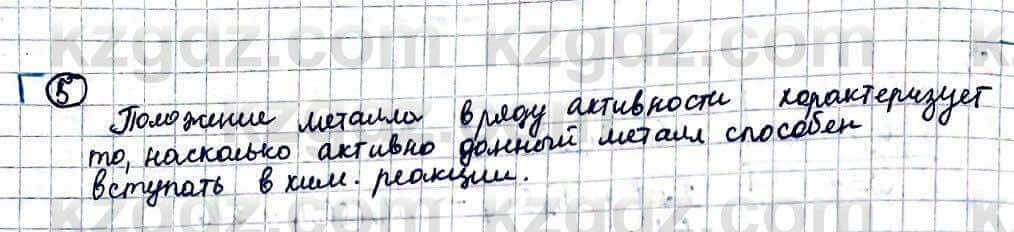 5
Положение металла в ряду активности характеризует
то, насколько активно данный металл способен
вступать в хим. реакции.
kzgdz.com